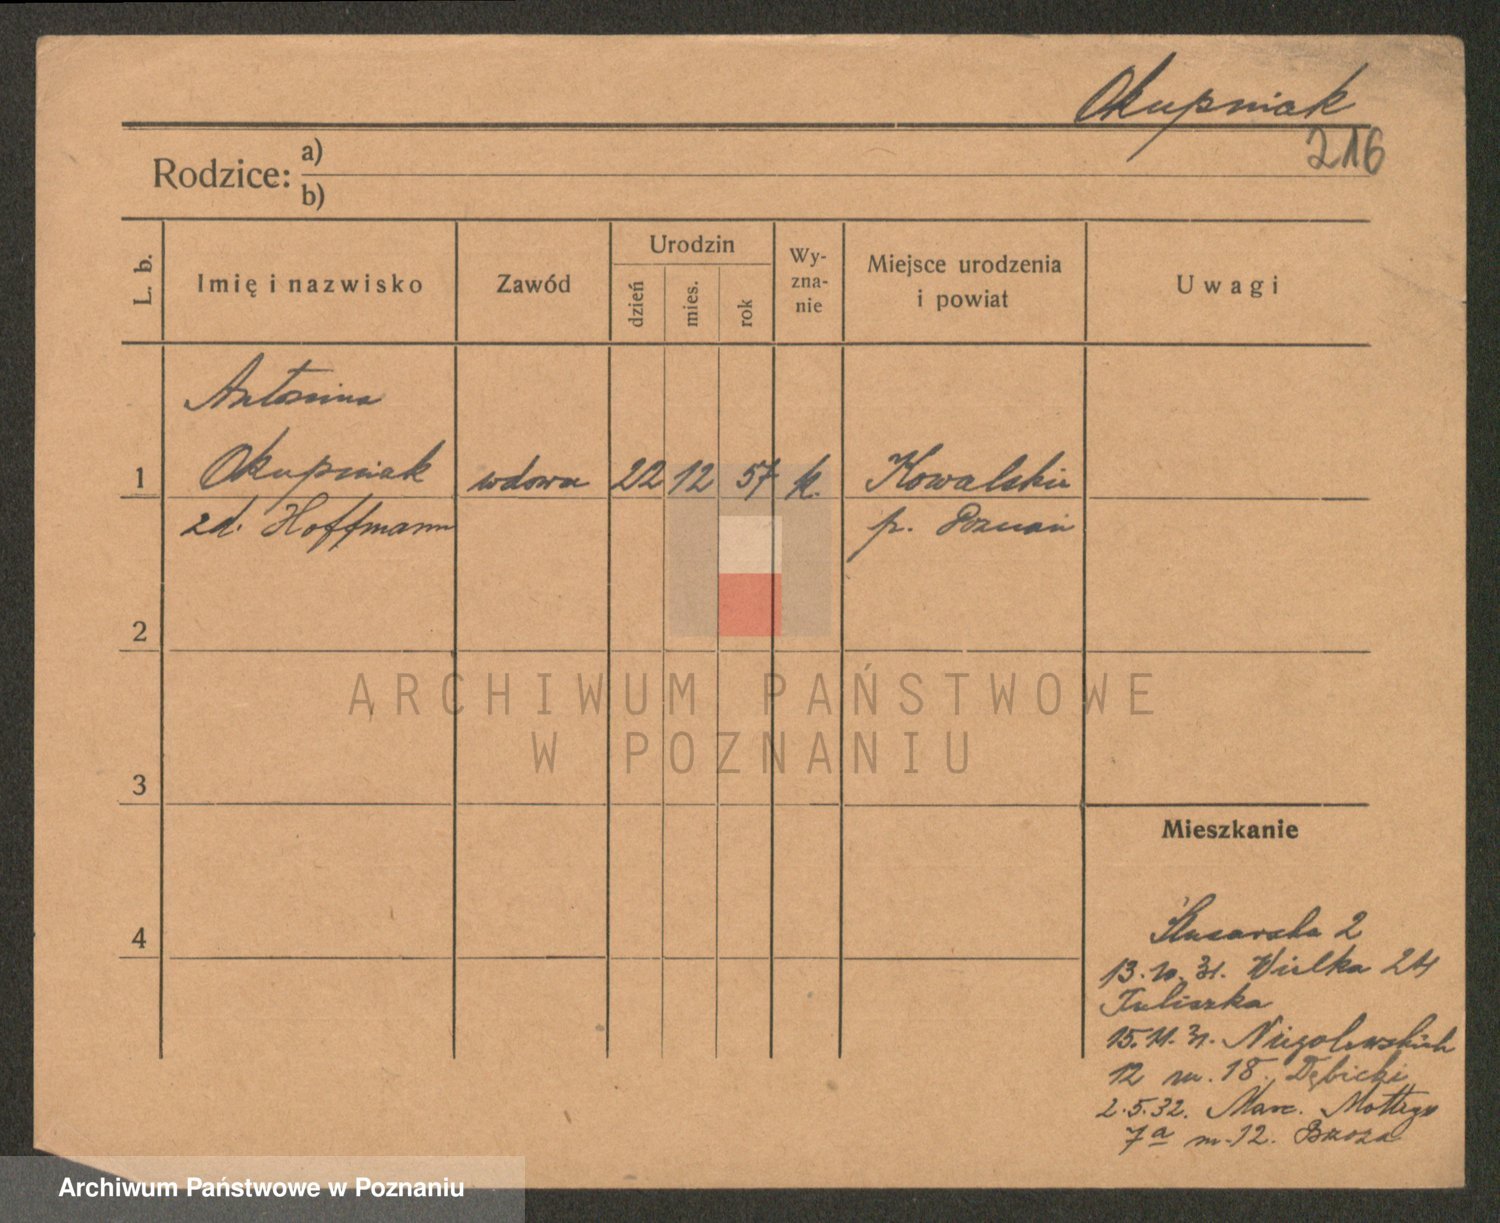 Okupniak
216
Rodzice: a)
b)
L. b.
Imię i nazwisko
Zawód
Urodzin
dzień
mies.
rok
Wy-
zna-
nie
Miejsce urodzenia
i powiat
Uwagi
Antonina
1 Okupniak wdowa 22 12 57 k. Kowalskie
zd. Hoffmann p. Poznań
2
ARCHIWUM PAŃSTWOWE
W POZNANIU
3
Mieszkanie
4
Ślusarska 2
13.10.31. Wielka 24
Tuliszka
15.11.31. Niegolewskich
12 m. 18. Dębicki
2.5.32. Marc. Mottego
7a m. 12. Brzoza
Archiwum Państwowe w Poznaniu